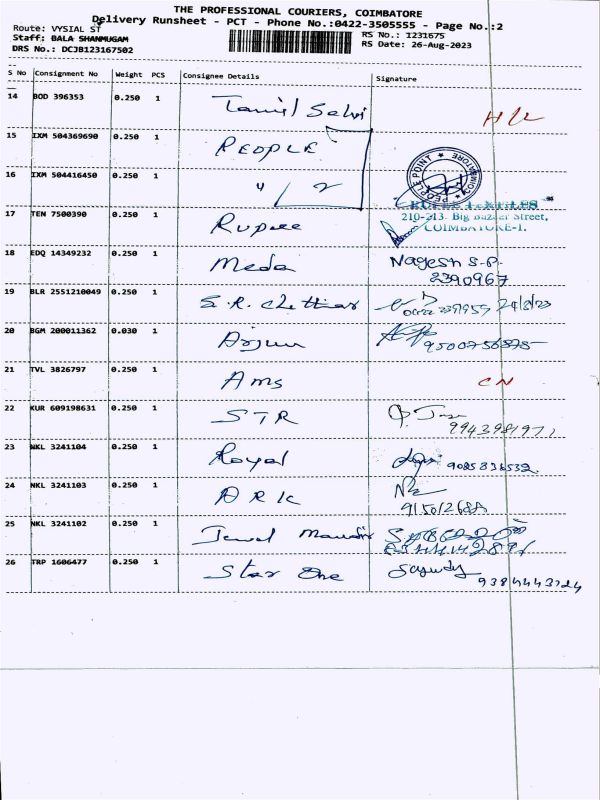 THE PROFESSIONAL COURIERS, COIMBATORE
Delivery Runsheet - PCT - Phone No.:0422-3505555 - Page No.:2
Route: VYSIAL ST
RS No.: 1231675
Staff: BALA SHANMUGAM
RS Date: 26-Aug-2023
DRS No.: DCJB123167502
S No Consignment No Weight PCS Consignee Details Signature
14 BOD 396353 0.250 1 Tamil Selvi
15 IXM 504369690 0.250 1 PEOPLE
16 IXM 504416450 0.250 1 " 2
PEOPLE POINT COIMBATORE
210-213. Big Bazaar Street,
COIMBATORE-1.
17 TEN 7500390 0.250 1 Rupee
18 EDQ 14349232 0.250 1 Meda Nagesh S.P.
2390967
19 BLR 2551210049 0.250 1 S.R. Chettiar
20 BGM 200011362 0.030 1 Arjun
21 TVL 3826797 0.250 1 Ams CN
22 KUR 609198631 0.250 1 STR
9943981971
23 NKL 3241104 0.250 1 Royal 9085836532
24 NKL 3241103 0.250 1 ARK
25 NKL 3241102 0.250 1 Jewel Mandir
26 TRP 1606477 0.250 1 Star One
9384443724